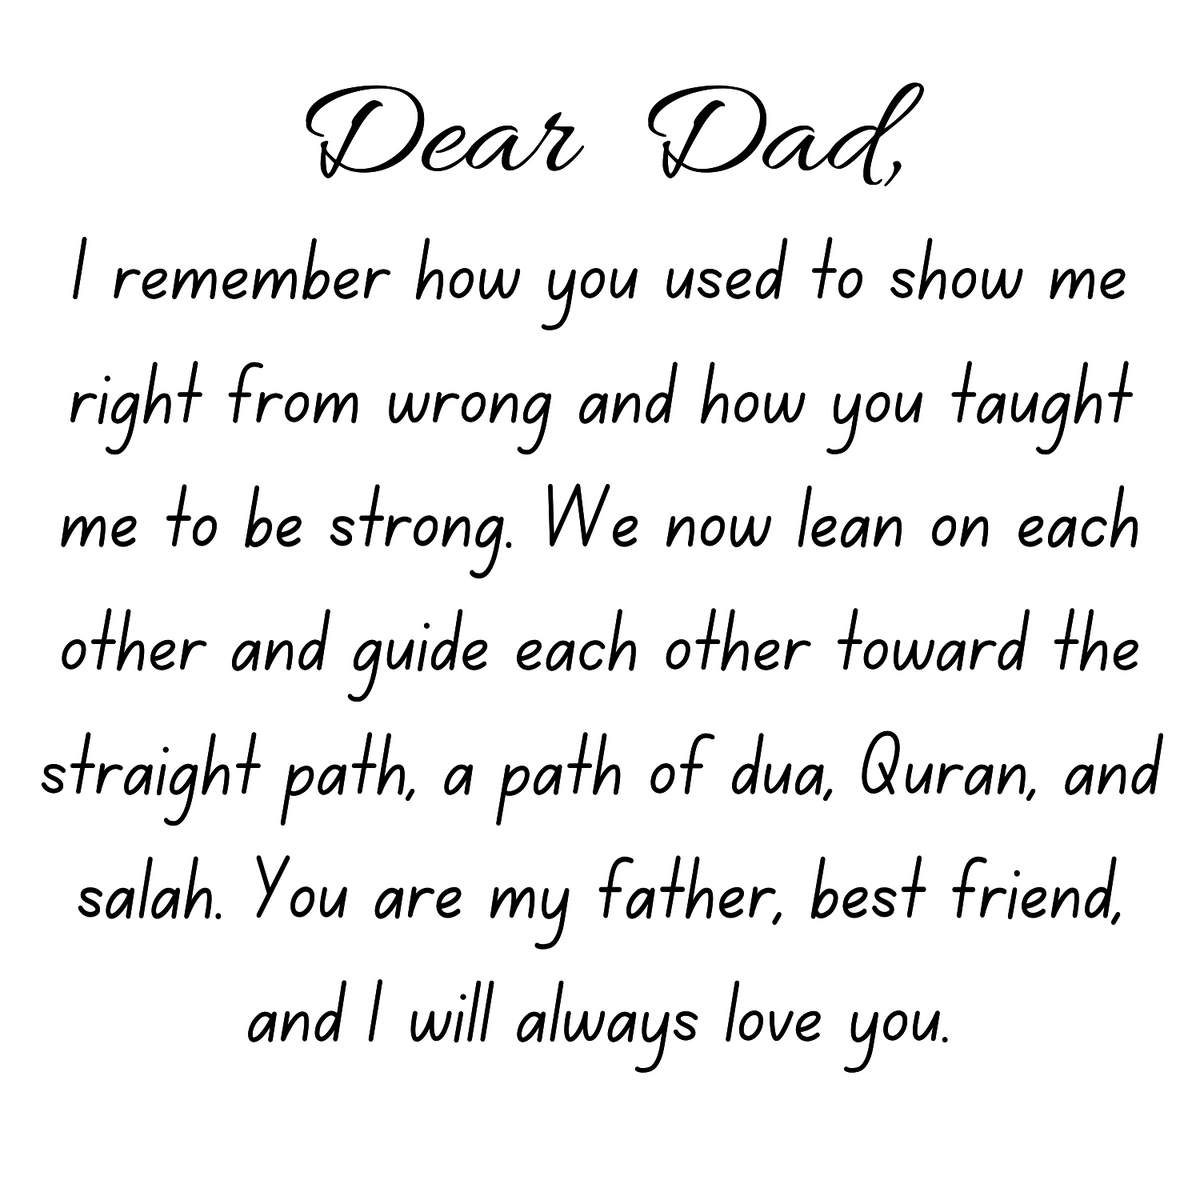 Dear Dad,
I remember how you used to show me
right from wrong and how you taught
me to be strong. We now lean on each
other and guide each other toward the
straight path, a path of dua, Quran, and
salah. You are my father, best friend,
and I will always love you.